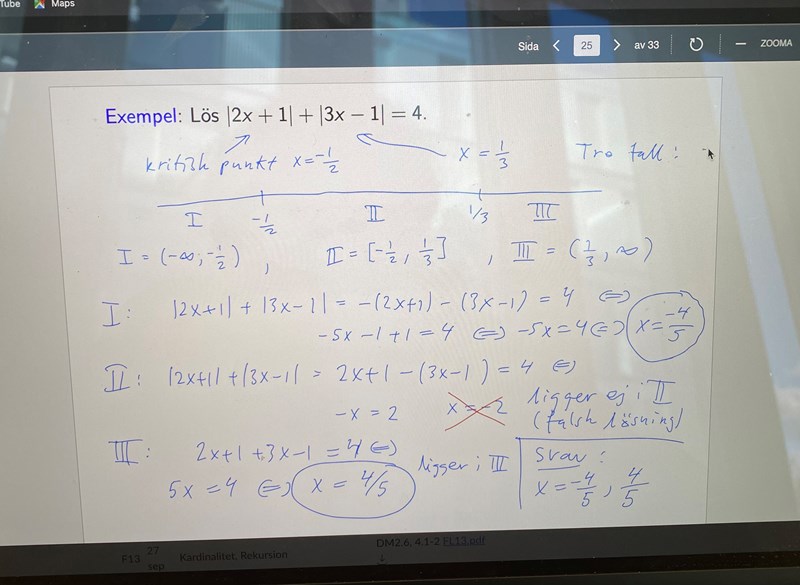 Tube Maps
Sida < 25 > av 33 ZOOMA
Exempel: Lös |2x + 1| + |3x − 1| = 4.
kritisk punkt x=-1/2 x = 1/3 Tre fall:
I -1/2 II 1/3 III
I = (-∞, -1/2), II = [-1/2, 1/3], III = (1/3, ∞)
I: |2x+1| + |3x-1| = -(2x+1) - (3x-1) = 4 ⇔
-5x -1+1 = 4 ⇔ -5x = 4 ⇔ x = -4/5
II: |2x+1| + |3x-1| = 2x+1 - (3x-1) = 4 ⇔
-x = 2 x = -2 ligger ej i II
(falsk lösning)
III: 2x+1 +3x-1 = 4 ⇔
5x = 4 ⇔ x = 4/5 ligger i III
Svar:
x = -4/5, 4/5
F13 27 sep Kardinalitet, Rekursion DM2.6, 4.1-2 FL13.pdf